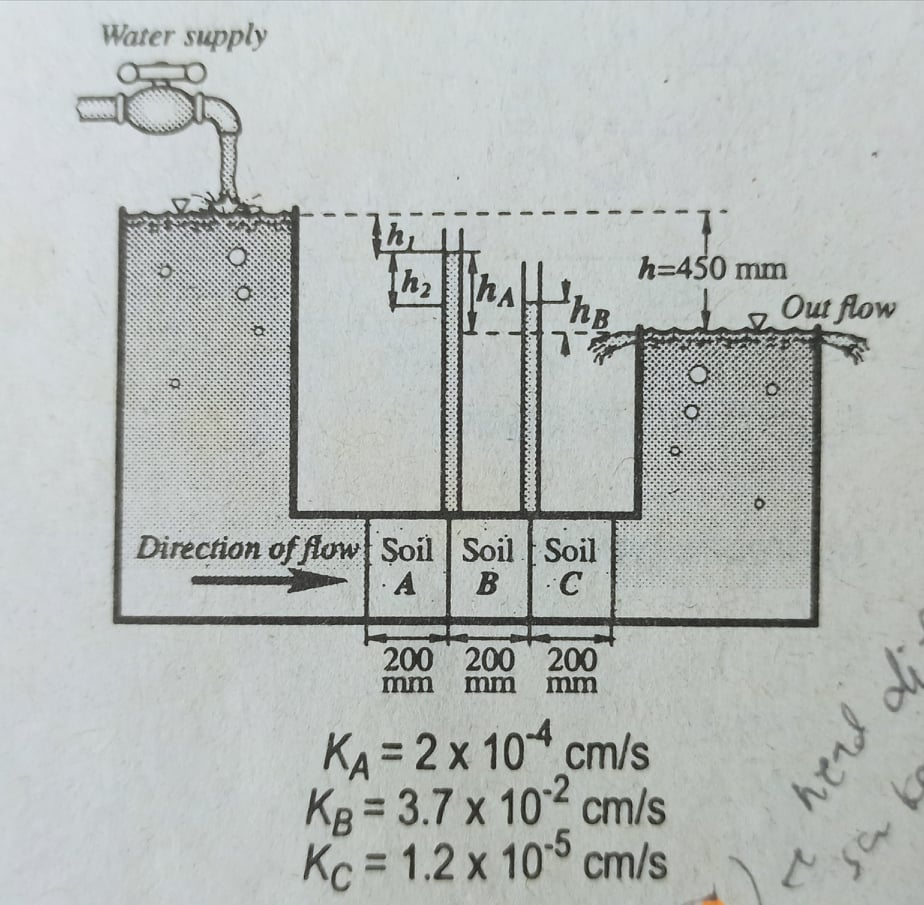 Water supply
h₁
h₂
hA
hB
h=450 mm
Out flow
Direction of flow
Soil A
Soil B
Soil C
200 mm
200 mm
200 mm
KA = 2 x 10⁻⁴ cm/s
KB = 3.7 x 10⁻² cm/s
KC = 1.2 x 10⁻⁵ cm/s